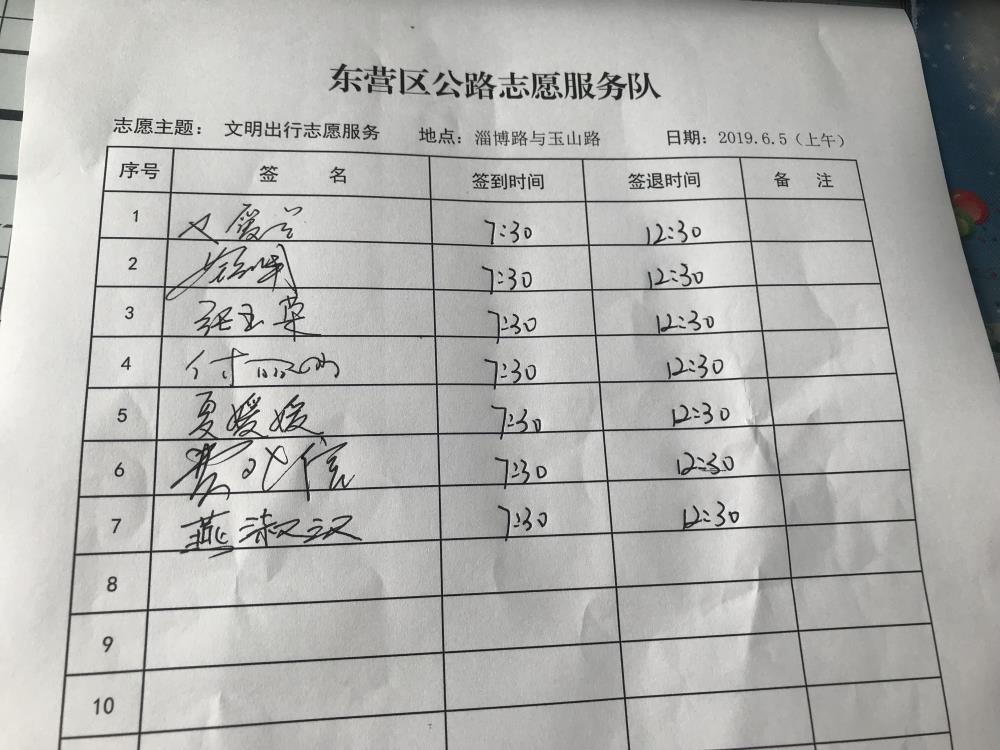 东营区公路志愿服务队
志愿主题： 文明出行志愿服务 地点：淄博路与玉山路 日期：2019.6.5（上午）
序号 签 名 签到时间 签退时间 备 注
1 7:30 12:30
2 7:30 12:30
3 张玉草 7:30 12:30
4 付丽 7:30 12:30
5 夏媛媛 7:30 12:30
6 7:30 12:30
7 燕淑汉 7:30 12:30
8
9
10